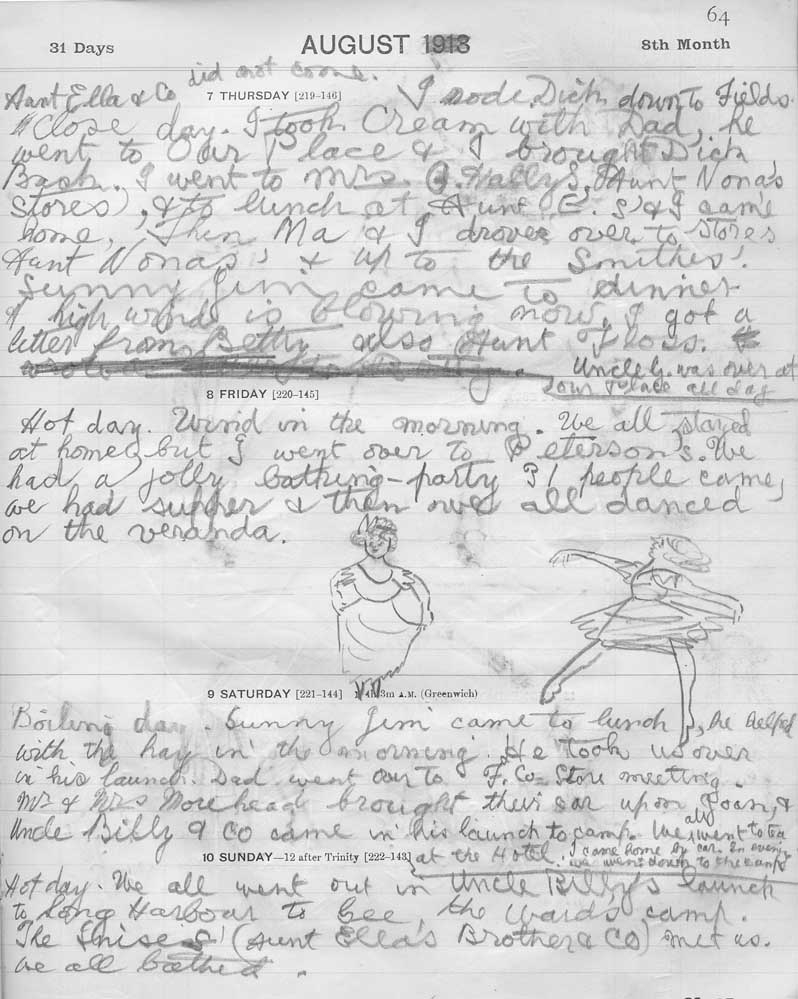 64
31 Days AUGUST 1913 8th Month
did not come.
Aunt Ella & Co
7 THURSDAY [219-146]
I rode Dick down to Fields.
Close day. I took Cream with Dad, he
went to Our Place & I brought Dick
Back. I went to Mrs. Aunt Nona's
Stores), & to lunch at Aunt E.'s & I came
home, Then Ma & I drove over to Stores
Aunt Nonas' & up to the Smithes'.
Sunny Jim came to dinner
A high wind is blowing now, I got a
letter from Betty also Aunt Floss.
Uncle G. was over at
Our Place all day
8 FRIDAY [220-145]
Hot day. Wind in the morning. We all stayed
at home but I went over to Peterson's. We
had a jolly bathing-party 31 people came,
we had supper & then we all danced
on the veranda.
9 SATURDAY [221-144] 3m A.M. (Greenwich)
Boiling day. Sunny Jim came to lunch, he helped
with the hay in the morning. He took us over
in his launch. Dad went over to F. Co Store meeting.
Mr & Mrs Morehead brought their car upon Joan, &
Uncle Billy & Co came in his launch to camp. We all went to tea
at the Hotel. I came home by car. In evening
we went down to the camp
10 SUNDAY—12 after Trinity [222-143]
Hot day. We all went out in Uncle Billy's launch
to Long Harbour to see the Ward's camp.
The (Aunt Ella's Brother & Co) met us.
we all bathed.